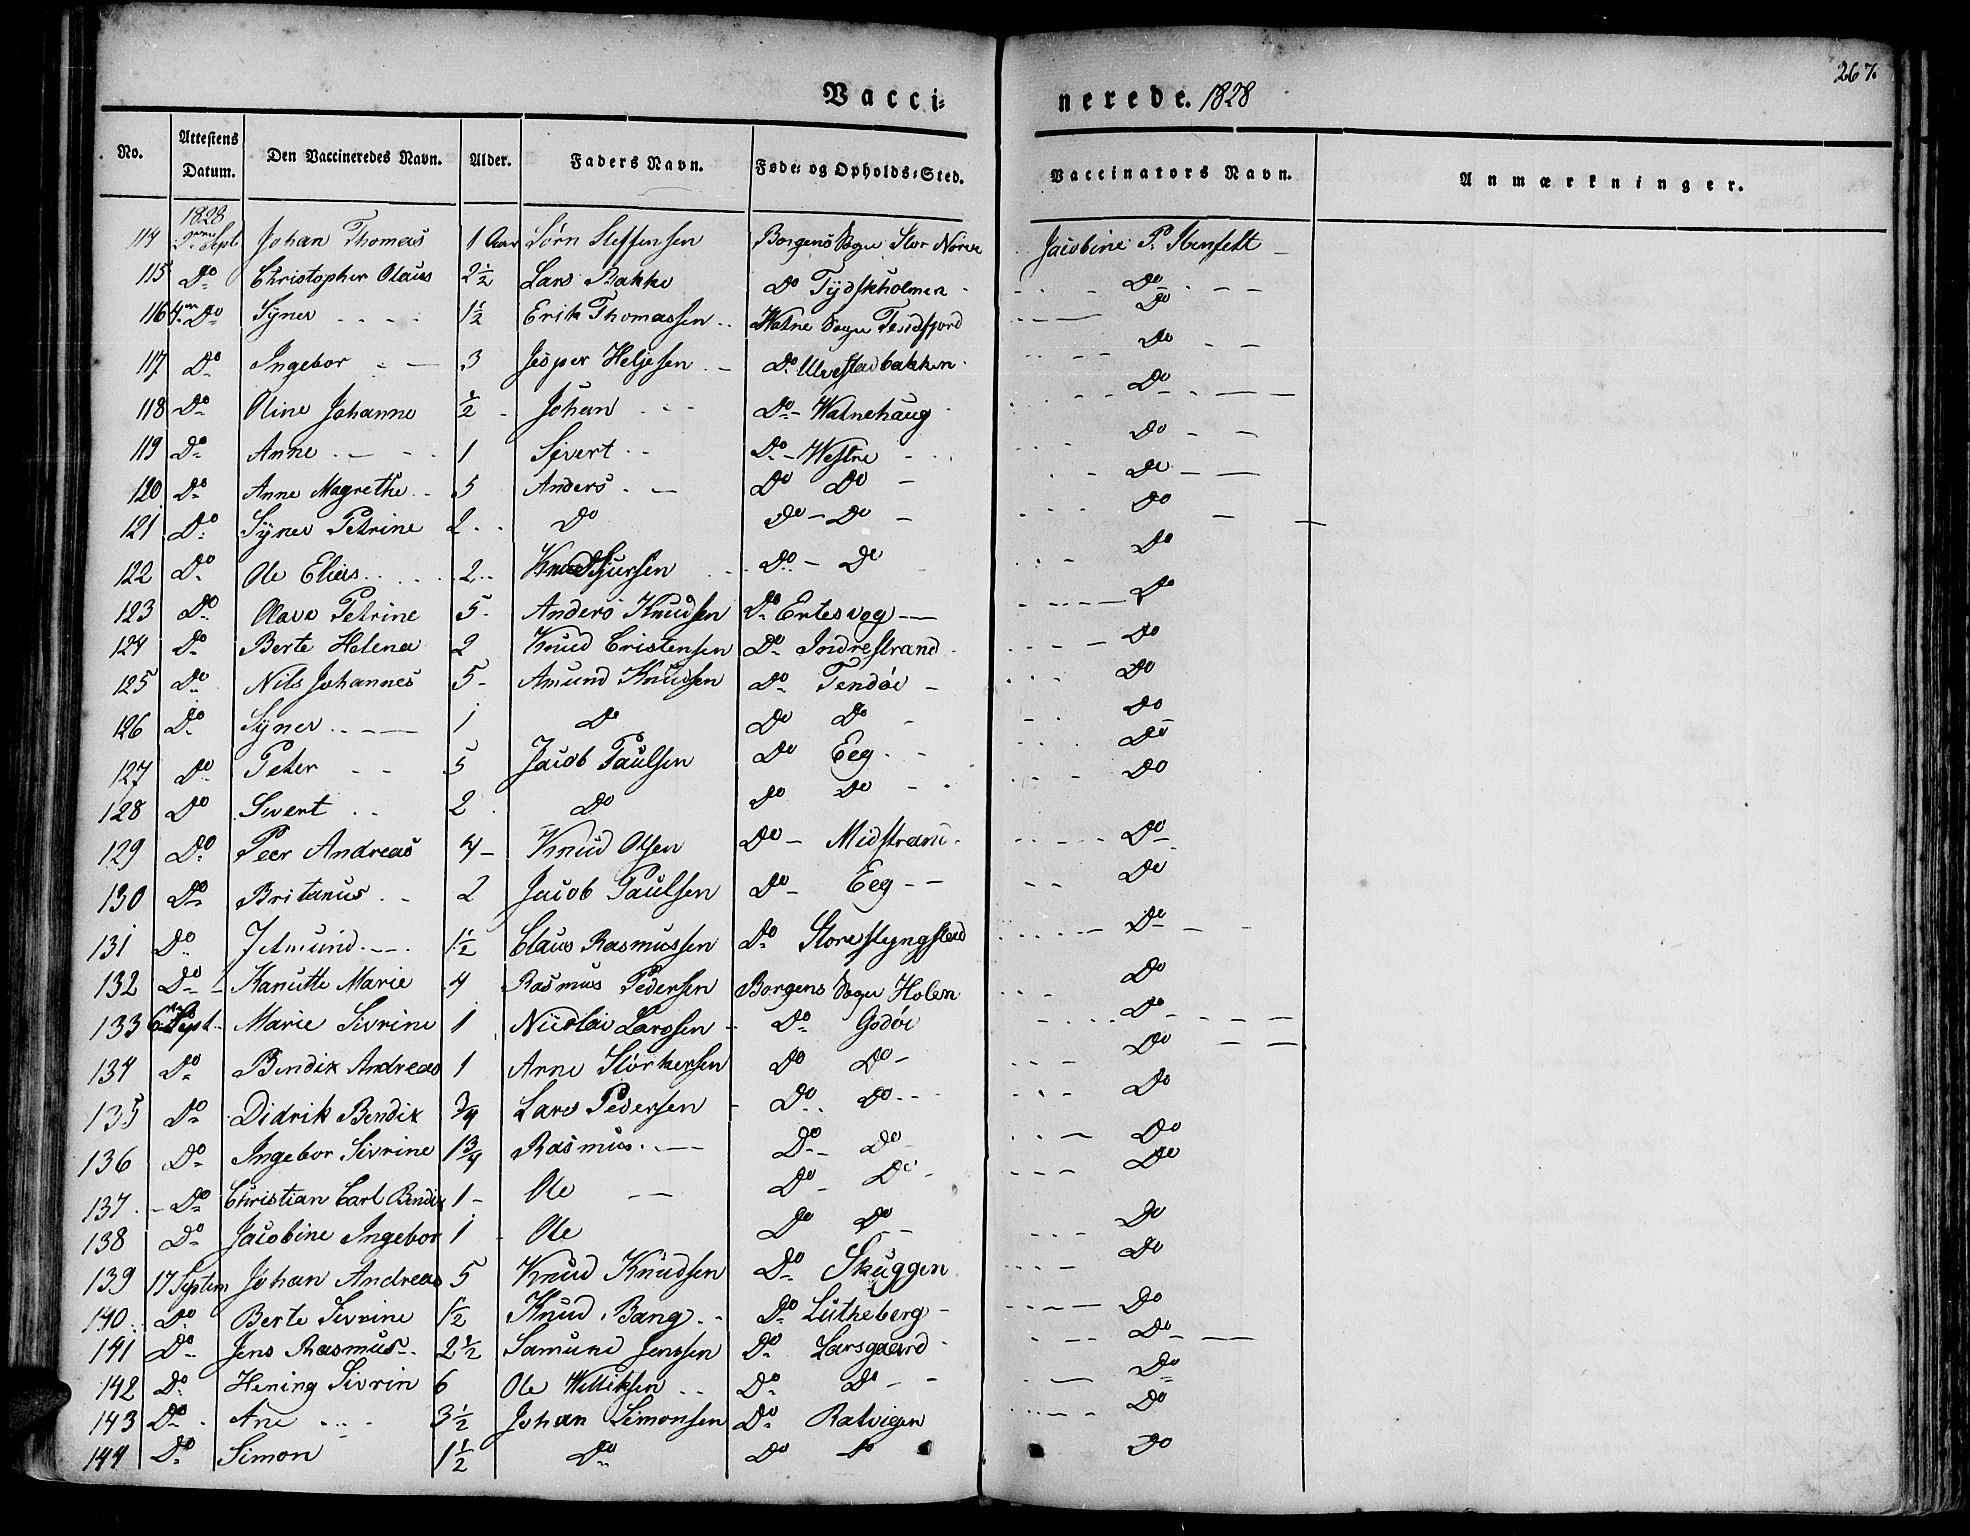 267.
Vacci=
nerede. 1828
No. Attestens Datum. Den Vaccineredes Navn. Alder. Faders Navn. Føde= og Opholds=Sted. Vaccinators Navn. Anmærkninger.
1828
114 Sept Johan Thomas 1 Aar Sørn Steffensen Borgens Sogn Stor Jacobine P.
115 Do Christopher Olaus 2½ Lars Bakke Do Tydskholmen Do
116 4 Do Synev 1½ Erik Thomassen Watne Sogn Tenfjord Do
117 Do Ingebor 3 Jesper Heljesen Do Ulvestadbakken Do
118 Do Oline Johanne ½ Johan Do Watnehaug Do
119 Do Anne 1 Sivert Do Westre Do
120 Do Anne Magrethe 5 Anders Do Do Do
121 Do Synev Petrine 2 Do Do Do Do
122 Do Ole Elias 2 Knud Sjursen Do Do Do
123 Do Olave Petrine 5 Anders Knudsen Do Ertesvog Do
124 Do Berte Helena 2 Knud Cristensen Do Indrestrand Do
125 Do Nils Johannes 5 Amund Knudsen Do Tendøe Do
126 Do Synev 1 Do Do Do Do
127 Do Peter 5 Jacob Paulsen Do Eeg Do
128 Do Sivert 2 Do Do Do Do
129 Do Peer Andreas 4 Knud Olsen Do Midstrand Do
130 Do Britanus 2 Jacob Paulsen Do Eeg Do
131 Do Jetmund 1½ Claus Rasmussen Do Do
132 Do Kanutte Marie 4 Rasmus Pedersen Borgens Sogn Holen Do
133 6 Sept Marie Sivrine 1 Nicolai Larssen Do Godøe Do
134 Do Bendix Andreas 1 Arne Størkersen Do Do Do
135 Do Didrik Bendix ¾ Lars Pedersen Do Do Do
136 Do Ingebor Sivrine 1¾ Rasmus Do Do Do
137 Do Christian Carl Bendix 1 Ole Do Do Do
138 Do Jacobine Ingebor 1 Ole Do Do Do
139 17 Septem Johan Andreas 5 Knud Knudsen Do Skuggen Do
140 Do Berte Sivrine 1½ Knud Bang Do Lutheberg Do
141 Do Jens Rasmus 2½ Samund Jenssen Do Larsgaard Do
142 Do Hening Sivrin 6 Ole Do Do Do
143 Do Ane 3½ Johan Simonsen Do Ratvigen Do
144 Do Simon 1½ Do Do Do Do